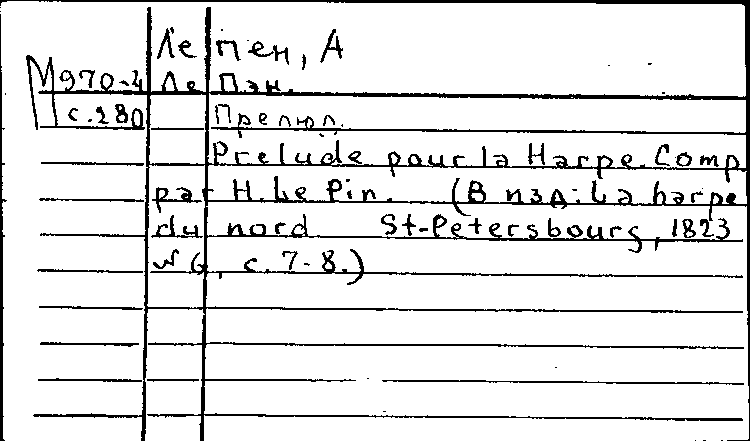 Ле пен, А
М970-4 Ле Пэн.
с.280 Прелюд.
Prelude pour la Harpe. Comp.
par H. Le Pin. (В изд: La harpe
du nord St-Petersbourg, 1823
№ 6, с. 7-8.)